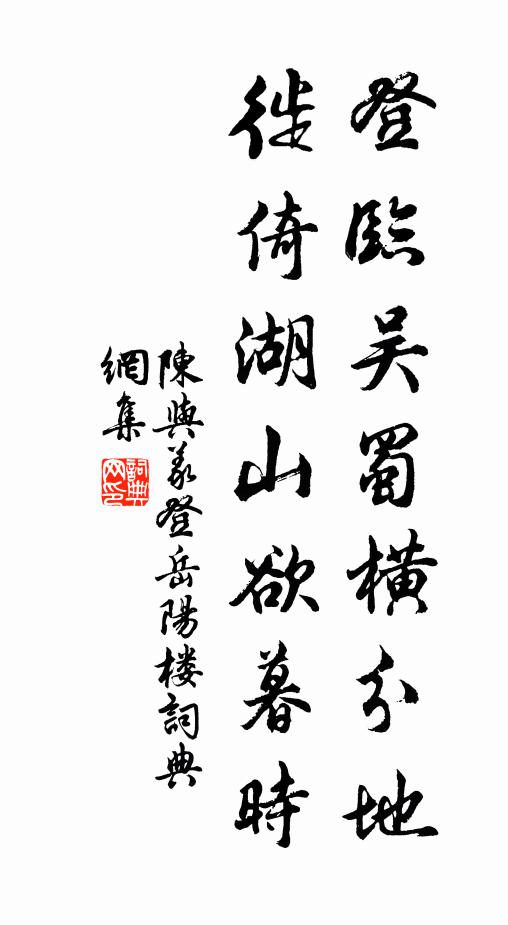 登臨吴蜀橫分地
徙倚湖山欲暮時
陳與義登岳陽楼詞典
網集
詞典
网印